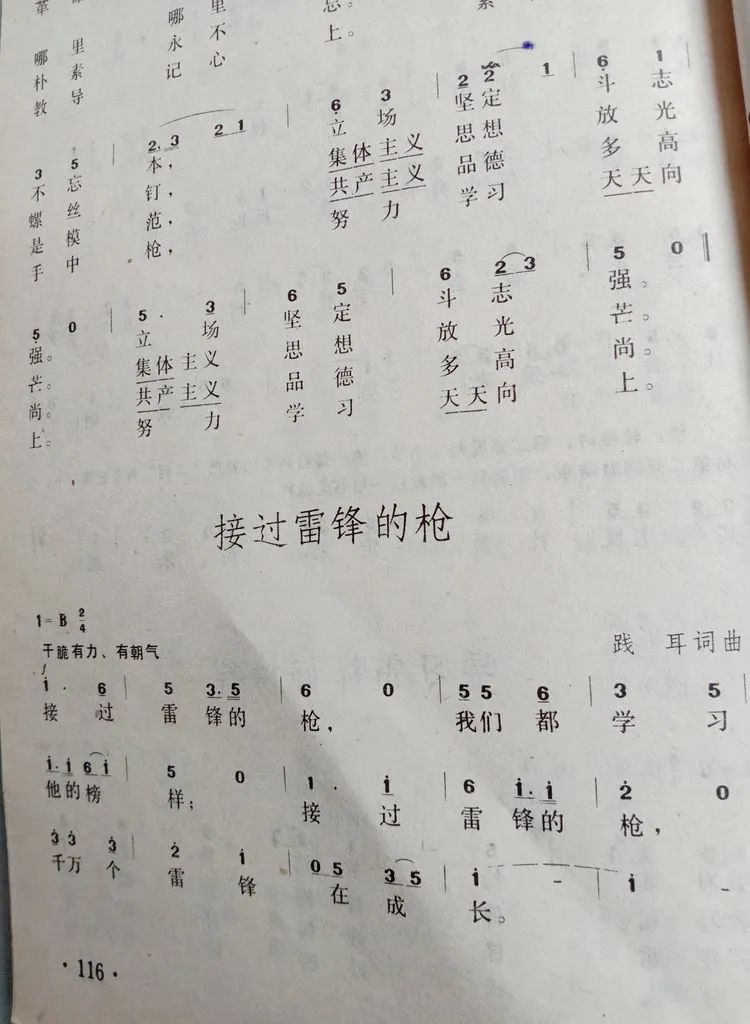 革 哪 里
哪 里
朴 素 永 不
教 导 记 心 上。
3 5 2. 3 2 1 6 3 2 2 1 6 1
不 忘 本， 立 场 坚 定 斗 志
螺 丝 钉， 集 体 主 义 思 想 放 光
是 模 范， 共 产 主 义 品 德 多 高
手 中 枪， 努 力 学 习 天 天 向
5 0 5 3 6 5 6 2 3 5 0
强。 立 场 坚 定 斗 志 强。
芒。 集 体 主 义 思 想 放 光 芒。
尚。 共 产 主 义 品 德 多 高 尚。
上。 努 力 学 习 天 天 向 上。
接过雷锋的枪
1=B 2/4
干脆有力、有朝气
践 耳词曲
f
i · 6 | 5 3. 5 | 6 0 | 5 5 6 | 3 5
接 过 雷 锋的 枪， 我们 都 学 习
i. i 6 i | 5 0 | 1 · i | 6 i. i | 2 0
他的榜 样； 接 过 雷 锋的 枪，
3 3 3 | 2 i | 0 5 3 5 | i - | i -
千万 个 雷 锋 在 成 长。
·116·